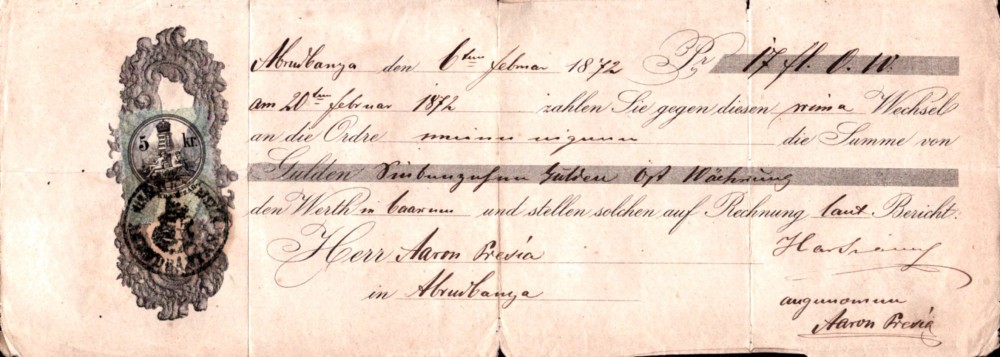 Abrudbanya den 6ten Februar 1872 Pr 17 fl. Ö. W.
am 20ten Februar 1872 zahlen Sie gegen diesen prima Wechsel
an die Ordre meine eigene die Summe von
Gulden Siebenzehn Gulden Öst Währung
den Werth in baarem und stellen solchen auf Rechnung laut Bericht.
Herr Aaron Presia
in Abrudbanya
angenommen
Aaron Presia
5 kr.